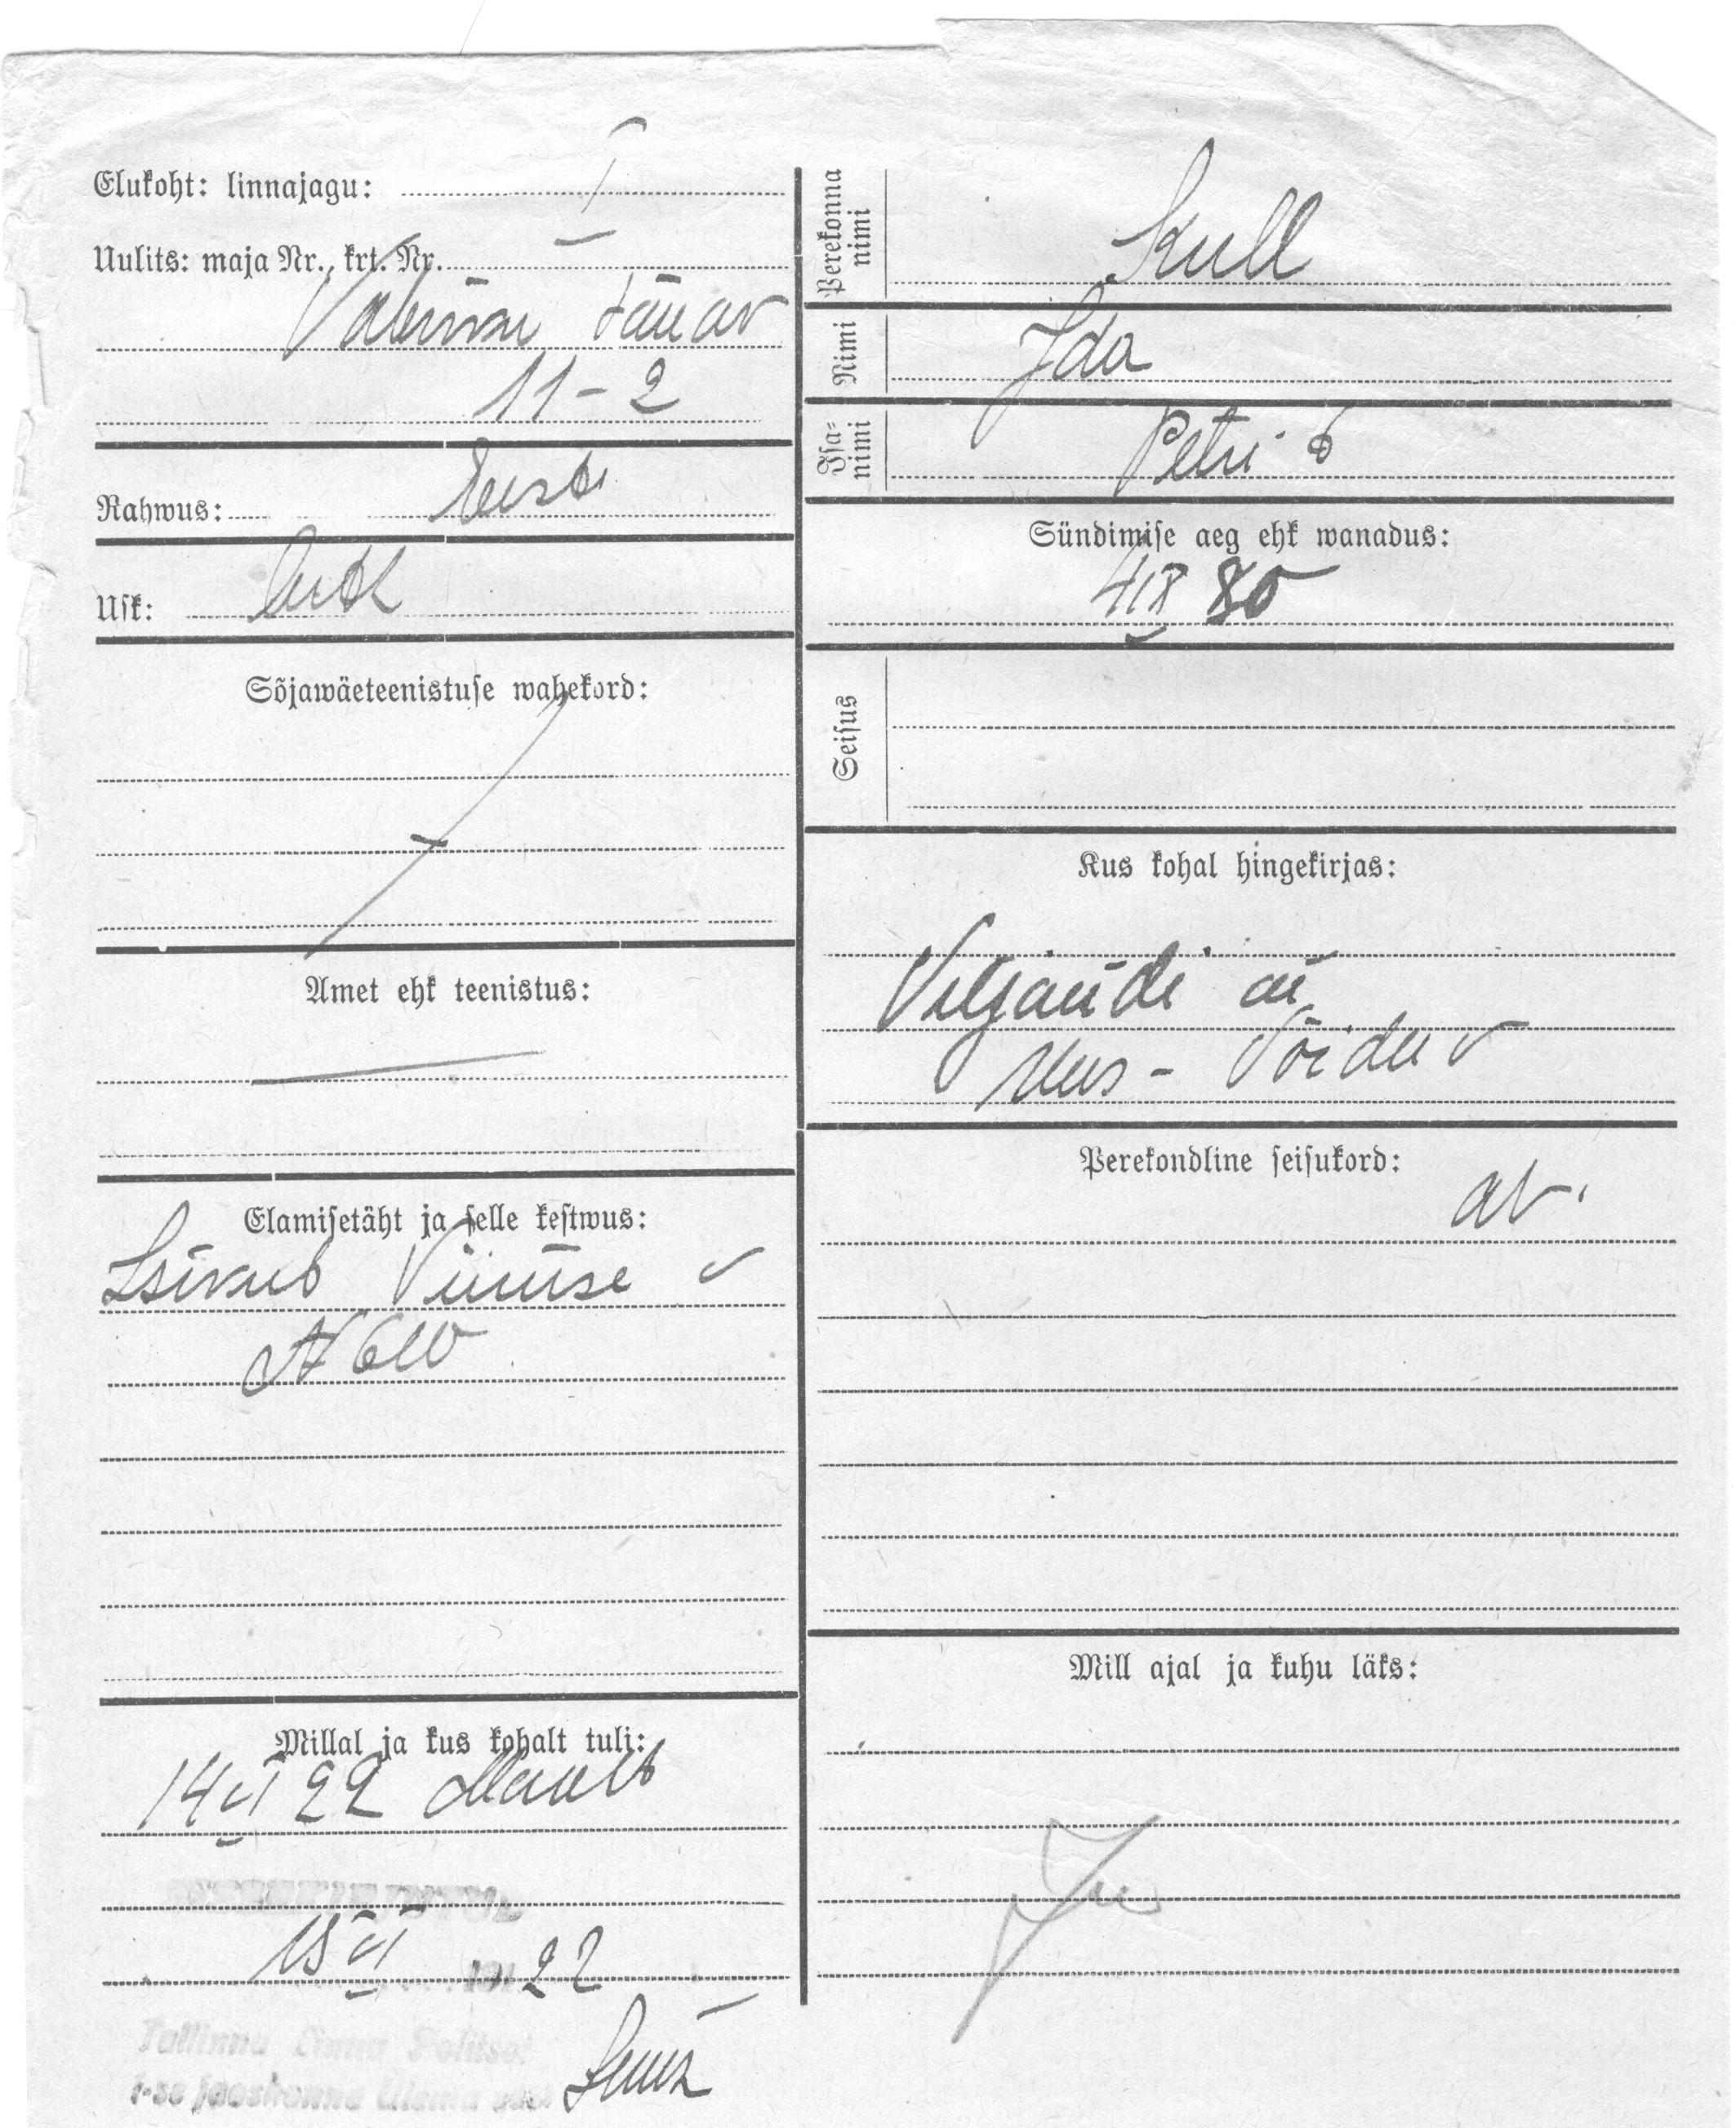 Elukoht: linnajagu: I
Uulits: maja Nr., krt. Nr.
tänav
11-2
Rahwus: Eesti
Usk: luth
Sõjawäeteenistuse wahekord:
Amet ehk teenistus:
Elamisetäht ja selle kestwus:
14 VI 22 Maalt
Millal ja kus kohalt tuli:
15 VI 1922
Tallinna Linna Politsei
1-se jaoskonna Ülema
Perekonna nimi
Kull
Nimi
Ida
Isa-nimi
Petri t
Sündimise aeg ehk wanadus:
80
Seisus
Kus kohal hingekirjas:
Viljandi m
Uus-Võidu v
Perekondline seisukord:
ab.
Mill ajal ja kuhu läks: